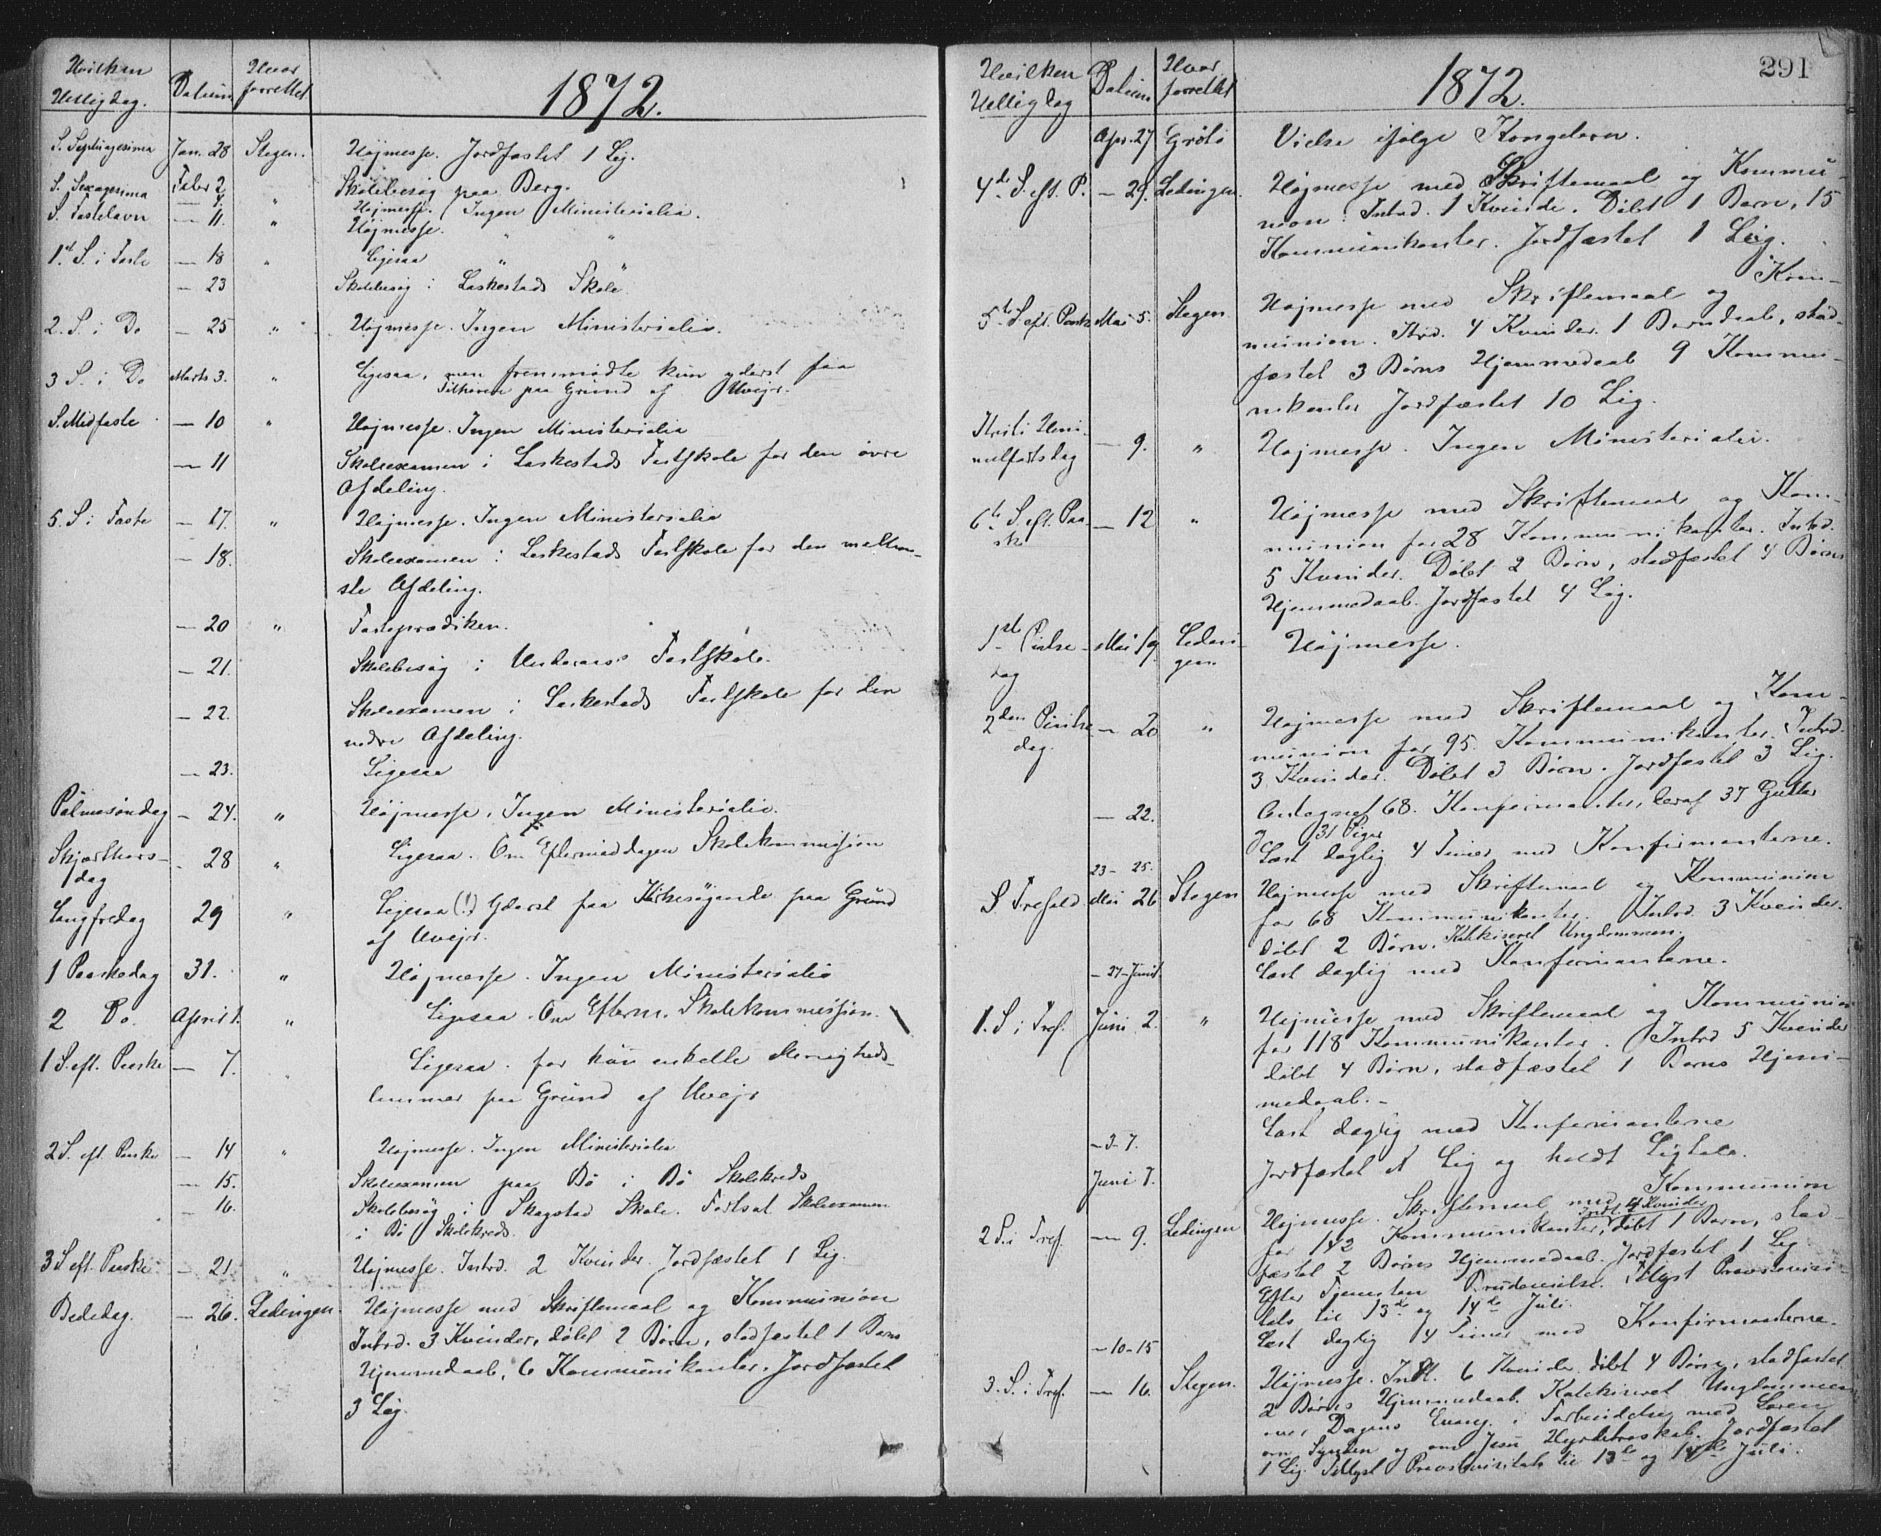 Hvilken Datum Hvor
Hellig Dag. forrettet 1872.
S. Septuagesima Jan. 28 Stegen. Højmesse. Jordfæstet 1 Lig.
Febr 2 Skolebesøg paa Berg.
S. Sexagesima — 4. " Højmesse. Ingen Ministerialia.
S. Fastelavn — 11. " Højmesse. " "
1st S. i Faste — 18 " Ligesaa " "
— 23 Skolebesøg i Laskestads Skole.
2. S. i Do — 25 " Højmesse. Ingen Ministerialia.
3 S. i Do Marts 3. " Ligesaa, men fremmødte kun yderst faa
Tilhørere paa Grund af Uvejr.
S. Midfaste — 10 " Højmesse. Ingen Ministerialia
— 11 Skoleexamen i Laskestads Fastskole for den øvre
Afdeling.
5. S. i Faste — 17. " Højmesse. Ingen Ministerialia
— 18. Skoleexamen i Laskestads Fastskole for den mellem-
ste Afdeling.
— 20 " Fasteprædiken.
— 21. Skolebesøg i Fastskole.
— 22. Skoleexamen i Laskestads Fastskole for den
nedre Afdeling.
— 23. Ligesaa
Palmesøndag — 24. " Højmesse. Ingen Ministerialia.
Skjærthors-
dag — 28 " Ligesaa. Om Eftermiddagen Skolekommission
Langfredag 29 " Ligesaa (!) Yderst faa Kirkesøgende paa Grund
af Uvejr.
1 Paaskedag 31. " Højmesse. Ingen Ministerialia
2 Do. April 1. " Ligesaa. Om Efterm. Skolekommission.
1 S. eft. Paaske — 7. Ligesaa. for kun enkelte Menigheds-
lemmer paa Grund af Uvejr
2 S. eft. Paaske — 14 " Højmesse. Ingen Ministerialia
— 15. Skoleexamen paa Bø i Bø Skolekreds
— 16. Skolebesøg i Skagstad Skole. Fortsat Skoleexamen
i Bø Skolekreds.
3 S. eft. Paaske — 21. " Højmesse. Introd. 2 Kvinder. Jordfæstet 1 Lig.
Bededag. — 26. Lødingen. Højmesse med Skriftemaal og Kommunion
Introd. 3 Kvinder, døbt 2 Børn, stadfæstet 1 Barns
Hjemmedaab, 6 Kommunikanter. Jordfæstet
3 Lig.
291
Hvilken Datum Hvor
Hellig Dag forrettet 1872.
Apr. 27 Grøtø Vielse ifølge Kongebrev.
4de S. eft. P. — 29. Ledingen. Højmesse med Skriftemaal og Kommu-
nion. Introd. 1 Kvinde. Døbt 1 Barn, 15
Kommunikanter. Jordfæstet 1 Lig.
5te S. eft. Paaske Mai 5. Stegen Højmesse med Skriftemaal og Kom-
munion. Introd. 4 Kvinder. 1 Barnedaab, stad-
fæstet 3 Børns Hjemmedaab 9 Kommu-
nikanter Jordfæstet 10 Lig.
Kristi Him-
melfartsdag — 9. " Højmesse. Ingen Ministerialia.
6te S. eft. Paa-
ske — 12 " Højmesse med Skriftemaal og Kom-
munion for 28 Kommunikanter. Introd.
5 Kvinder. Døbt 2 Børn, stadfæstet 4 Børns
Hjemmedaab. Jordfæstet 4 Lig.
1ste Pintse
dag Mai 19. Ledin-
gen. Højmesse.
2den Pintse
dag. — 20 " Højmesse med Skriftemaal og Kom-
munion for 95. Kommunikanter. Introd.
3 Kvinder. Døbt 3 Børn. Jordfæstet 3 Lig.
— 22. Antaget 68. Konfirmanter, deraf 37 Gutter
og 31 Piger
23 - 25. Læst daglig 4 Timer med Konfirmanterne.
S. Trefold. Mai 26 Stegen Højmesse med Skriftemaal og Kommunion
for 68 Kommunikanter. Introd. 3 Kvinder.
døbt 2 Børn. Katekiseret Ungdommen.
— 27 - Juni 1. Læst daglig med Konfirmanterne.
1. S. i Tref. Juni 2. " Højmesse med Skriftemaal og Kommunion
for 118 Kommunikanter. Introd 5 Kvinder
døbt 4 Børn, stadfæstet 1 Barns Hjem-
medaab. -
— 3-7. Læst daglig med Konfirmanterne
Juni 7. Jordfæstet et Lig og holdt Ligtale.
2 S. i Tref. — 9. Ledingen Højmesse. Skriftemaal med Kommunion
for 142 Kommunikanter, Intr. 4 Kvinder døbt 1 Barn, stad-
fæstet 2 Børns Hjemmedaab. Jordfæstet 1 Lig
Efter Tjenesten Brudevielse. Tillyst Provstevisi-
tats til 13de og 14de Juli.
— 10 - 15 Læst daglig 4 Timer med Konfirmanterne.
3. S. i Tref. — 16. Stegen. Højmesse. Introd. 6 Kvinder, døbt 4 Børn, stadfæstet
2 Børns Hjemmedaab. Katekiseret Ungdommen
over Dagens Evang. i Forbindelse med Læren
om Synden og om Jesu Hyrdetroskab. Jordfæstet
1 Lig. Tillyst Provstevisitats til 13de og 14de Juli.